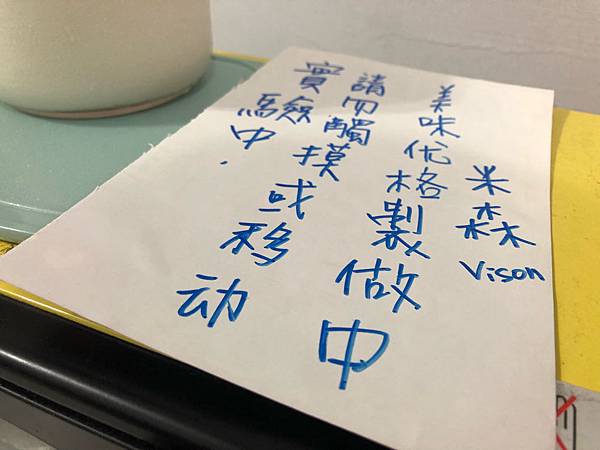 米森
Vison
美味优格製做中
請勿觸摸或移动
實驗中.